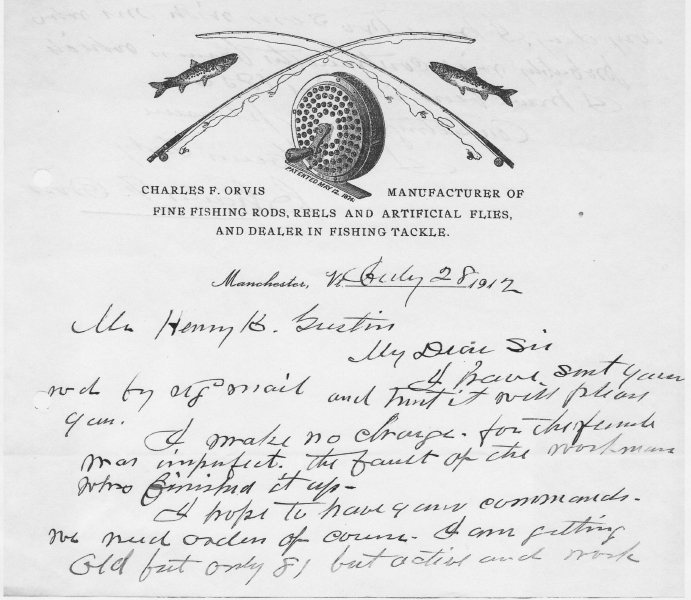 PATENTED MAY 12, 1874.
CHARLES F. ORVIS MANUFACTURER OF
FINE FISHING RODS, REELS AND ARTIFICIAL FLIES,
AND DEALER IN FISHING TACKLE.
Manchester, Vt. July 28 1912
Mr Henry K. Gustin
My Dear Sir
I have sent your
rod by mail and trust it will please
you.
I make no charge. for the ferrule
was imperfect. the fault of the workman
who finished it up-
I hope to have your commands.
we need orders of course. I am getting
Old but only 81 but active and work